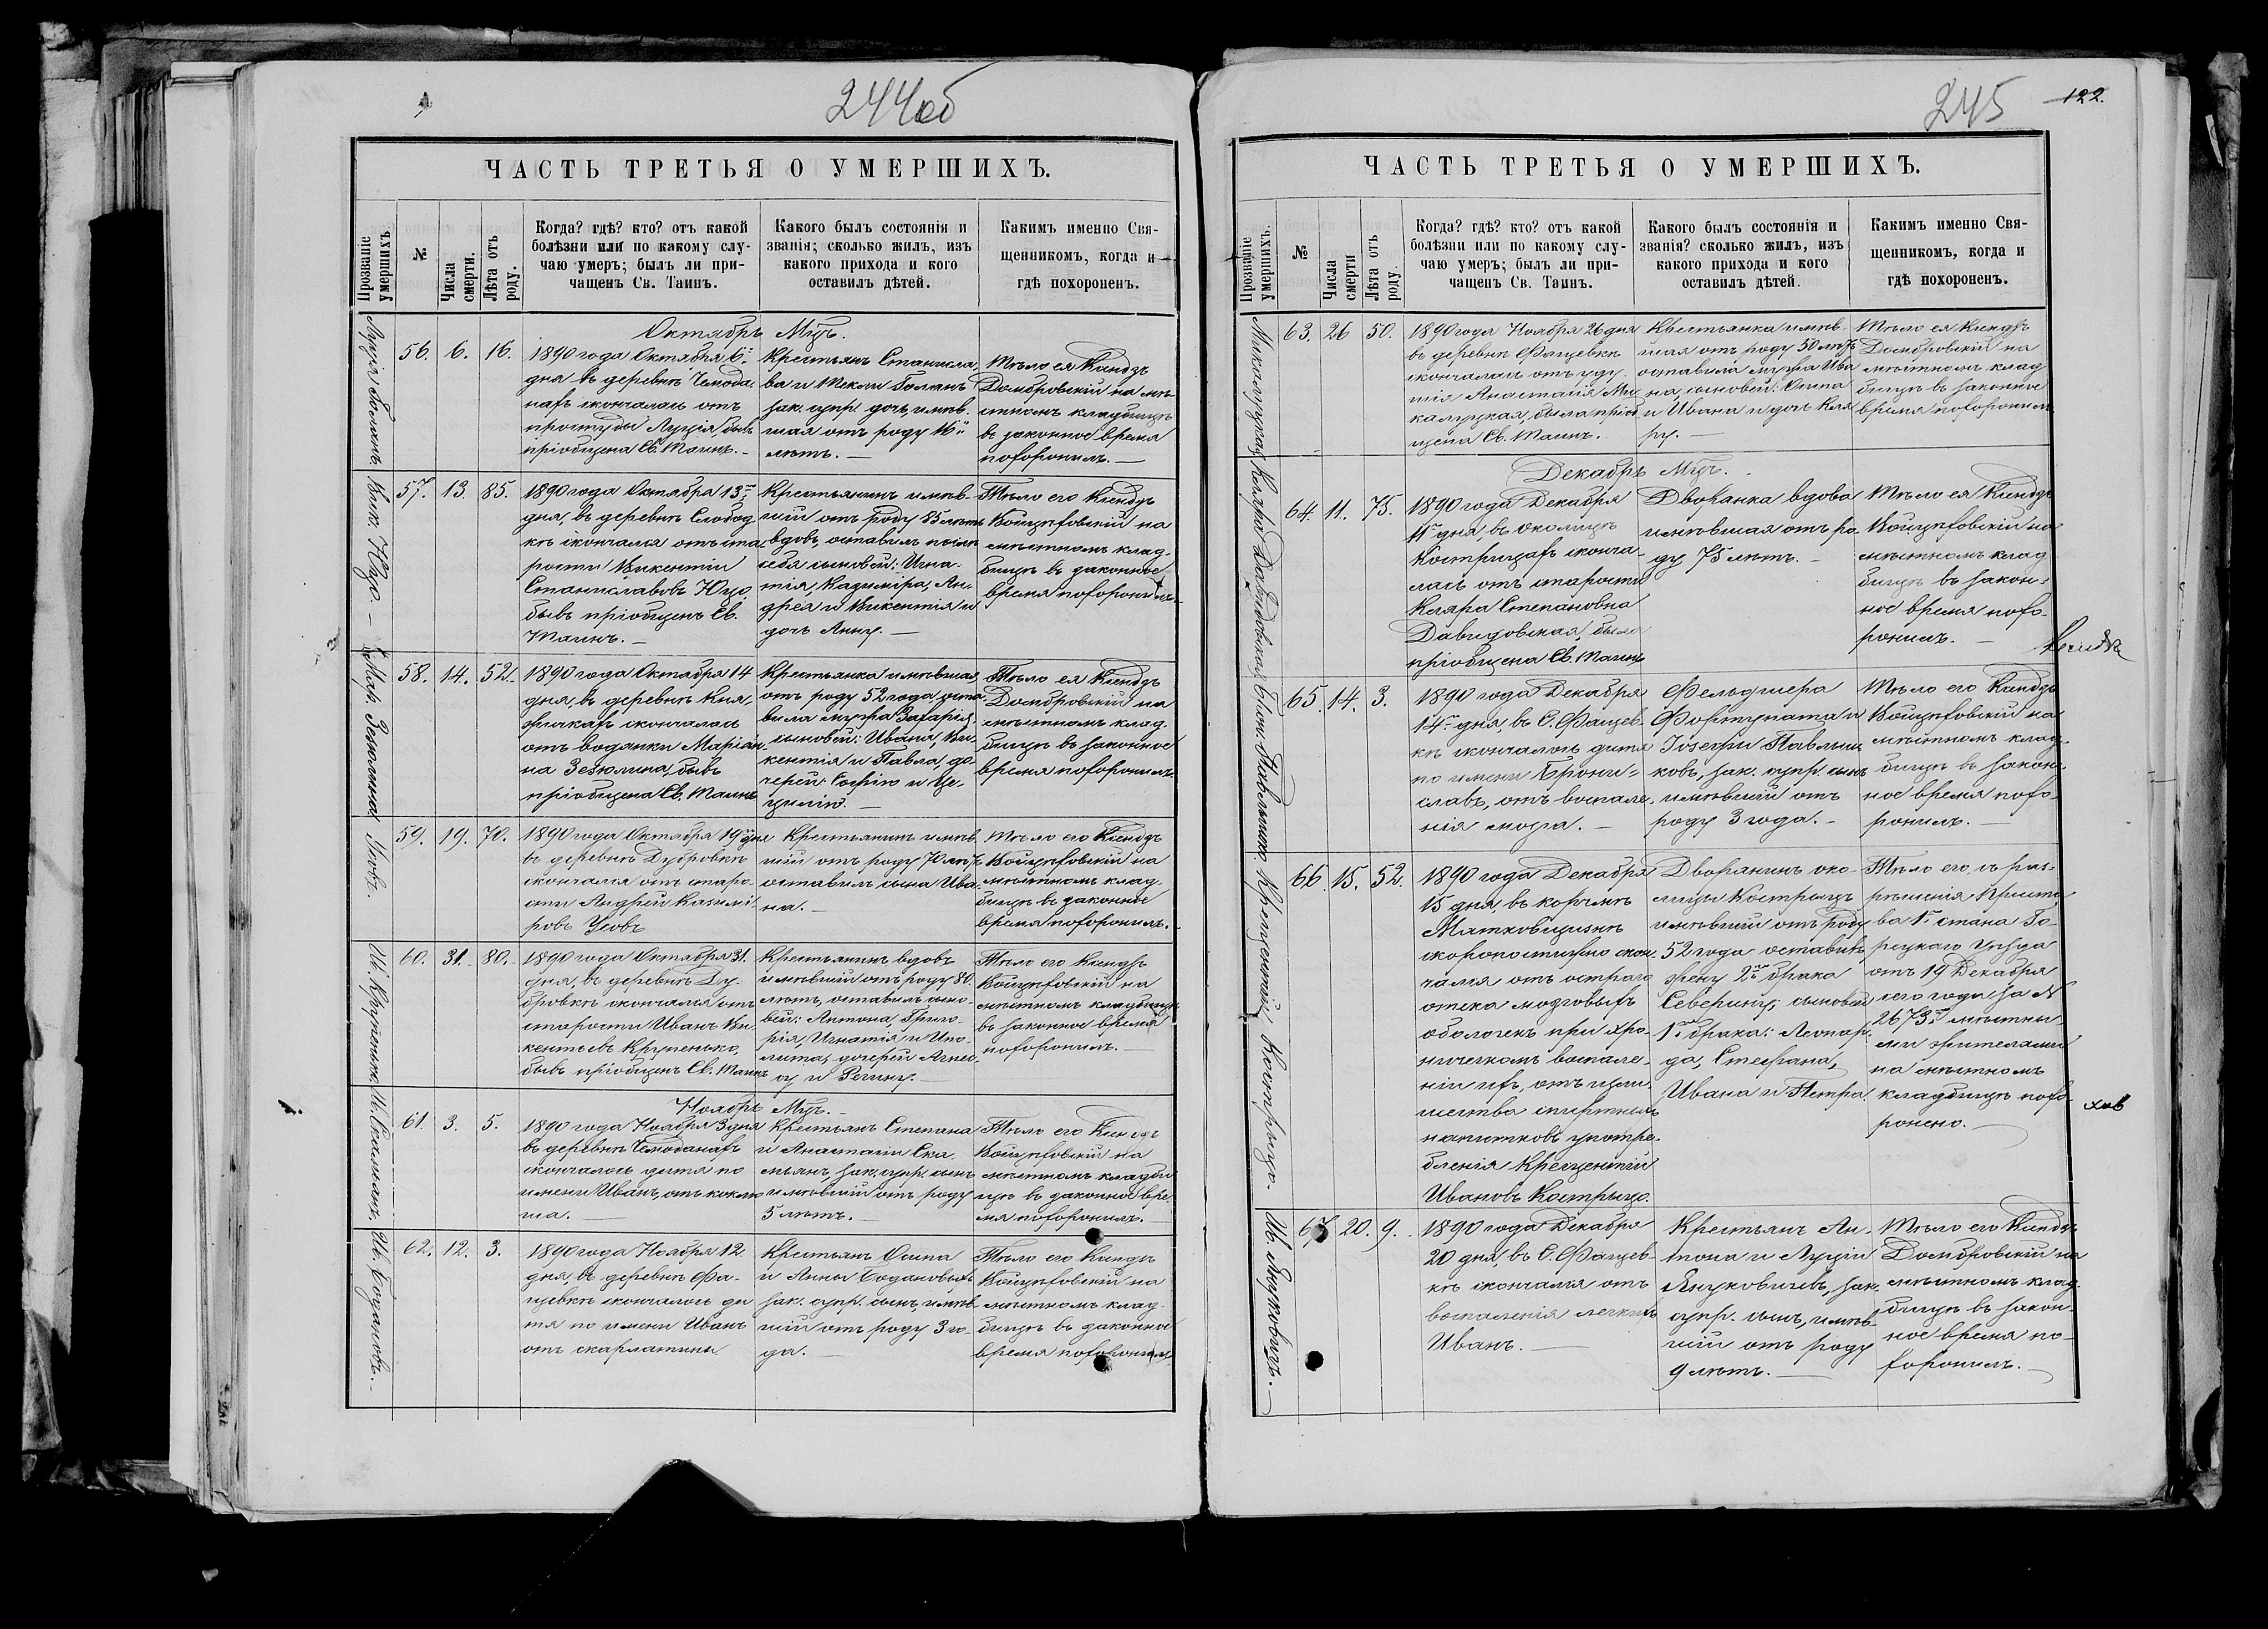 244об
ЧАСТЬ ТРЕТЬЯ О УМЕРШИХЪ.
Прозваніе умершихъ.
№
Числа смерти.
Лѣта отъ роду.
Когда? гдѣ? кто? отъ какой
болѣзни или по какому слу-
чаю умеръ; былъ ли при-
чащенъ Св. Таинъ.
Какого былъ состоянія и
званія; сколько жилъ, изъ
какого прихода и кого
оставилъ дѣтей.
Каким именно Свя-
щенникомъ, когда и
гдѣ похороненъ.
Октябрь Мцъ.
Луція
56. 6. 16.
1890 года Октября 6-
дня въ деревнѣ Чемода-
нахъ скончалась отъ
простуды Луція, бывъ
пріобщена Св. Таинъ. -
Крестьянъ Станисла-
ва и Теклы
зак. супр. дочь, имѣв-
шая отъ роду 16-
лѣтъ. -
Тѣло ея Ксендзъ
Домбровскій на мѣ-
стномъ кладбищѣ
въ законное время
похоронилъ. -
Вик. Юцо. -
57. 13. 85.
1890 года Октября 13-
дня, въ деревнѣ Слобод-
кѣ скончался отъ ста-
рости Викентій
Станиславовъ Юцо,
бывъ пріобщенъ Св.
Таинъ. -
Крестьянинъ имѣв-
шій отъ роду 85 лѣтъ
вдовъ, оставилъ послѣ
себя сыновей: Игна-
тія, Казиміра, Ан-
дрея и Викентія и
дочь Анну. -
Тѣло его Ксендзъ
Войцѣховскій на
мѣстномъ клад-
бищѣ въ законное
время похоронилъ.
Мар. Зезюлина
58. 14. 52.
1890 года Октября 14
дня, въ деревнѣ Кня-
жикахъ скончалась
отъ водянки Маріан-
на Зезюлина, бывъ
пріобщена Св. Таинъ
Крестьянка имѣвшая
отъ роду 52 года, оста-
вила мужа Захарія,
сыновей: Ивана, Ви-
кентія и Павла, до-
черей: Софію и Це-
цилію. -
Тѣло ея Ксендзъ
Домбровскій на
мѣстномъ клад-
бищѣ въ законное
время похоронилъ.
Усовъ.
59. 19. 70.
1890 года Октября 19 дня
въ деревнѣ Дубровкѣ
скончался отъ старо-
сти Андрей Казимі-
ровъ Усовъ
Крестьянинъ имѣв-
шій отъ роду 70 лѣтъ
оставилъ сына Ива-
на. -
Тѣло его Ксендзъ
Войцѣховскій на
мѣстномъ клад-
бищѣ въ законное
время похоронилъ.
Ив. Крупенько
60. 31. 80.
1890 года Октября 31.
дня, въ деревнѣ Ду-
бровкѣ скончался отъ
старости Иванъ Ви-
кентьевъ Крупенько,
бывъ пріобщенъ Св. Таинъ
Крестьянинъ вдовъ
имѣвшій отъ роду 80
лѣтъ, оставилъ сыно-
вей: Антона, Григо-
рія, Игнатія и Ипо-
лита, дочерей Агнес-
су и Регину. -
Тѣло его Ксендзъ
Войцѣховскій на
мѣстномъ кладбищѣ
въ законное время
похоронилъ. -
Ноябрь Мцъ. -
61. 3. 5.
1890 года Ноября 3 дня
въ деревнѣ Чемоданахъ
скончалось дитя по
имени Иванъ, отъ коклю-
ша. -
Крестьянъ Степана
и Анастасіи Ска-
мьянъ, зак. супр. сынъ
имѣвшій отъ роду
5 лѣтъ. -
Тѣло его Ксендзъ
Войцѣховскій на
мѣстномъ кладби-
щѣ въ законное вре-
мя похоронилъ. -
Ив. Богдановъ. -
62. 12. 3.
1890 года Ноября 12
дня, въ деревнѣ Фа-
щевкѣ скончалось ди-
тя по имени Иванъ
отъ скарлатины
Крестьянъ Осипа
и Анны Богдановыхъ
зак. супр. сынъ, имѣв-
шій отъ роду 3 го-
да. -
Тѣло его Ксендзъ
Войцѣховскій на
мѣстномъ клад-
бищѣ въ законное
время похоронилъ.
245
122.
ЧАСТЬ ТРЕТЬЯ О УМЕРШИХЪ.
Прозваніе умершихъ.
№
Числа смерти
Лѣта отъ роду.
Когда? гдѣ? кто? отъ какой
болѣзни или по какому слу-
чаю умеръ; былъ ли при-
чащенъ Св. Таинъ.
Какого былъ состоянія и
званія? сколько жилъ, изъ
какого прихода и кого
оставилъ дѣтей.
Каким именно Свя-
щенникомъ, когда и
гдѣ похороненъ.
Микалуцкая
63. 26 50.
1890 года Ноября 26 дня
въ деревнѣ Фащевкѣ
скончалась отъ уду-
шія Анастасія Ми-
калуцкая, была пріоб-
щена Св. Таинъ.
Крестьянка имѣв-
шая отъ роду 50 лѣтъ
оставила мужа Ива-
на, сыновей: Осипа
и Ивана и дочь Кля-
ру. -
Тѣло ея Ксендзъ
Домбровскій на
мѣстномъ клад-
бищѣ въ законное
время похоронилъ
Декабрь Мцъ.
Давидовская
64. 11. 75.
1890 года Декабря
11 дня, въ околицѣ
Кострицахъ сконча-
лась отъ старости
Кляра Степановна
Давидовская, была
пріобщена Св. Таинъ
Дворянка вдова
имѣвшая отъ ро-
ду 75 лѣтъ. -
Тѣло ея Ксендзъ
Войцѣховскій на
мѣстномъ клад-
бищѣ въ закон-
ное время похо-
ронилъ. -
65. 14. 3.
1890 года Декабря
14- дня, въ С. Фащев-
кѣ скончалось дитя
по имени Брони-
славъ, отъ воспале-
нія мозга. -
Фельдшера
Фортуната и
Іозефы Павлюш-
ковъ, зак. супр. сынъ
имѣвшій отъ
роду 3 года. -
Тѣло его Ксендзъ
Войцѣховскій на
мѣстномъ клад-
бищѣ въ закон-
ное время похо-
ронилъ. -
Крещентій Кострицо.
66. 15. 52.
1890 года Декабря
15 дня, въ корчмѣ
Мятковщизнѣ
скоропостижно скон-
чался отъ остраго
отека мозговыхъ
оболочекъ при хро-
ническомъ воспале-
ніи ихъ, отъ изли-
шества спиртныхъ
напитковъ употре-
бленія Крещентій
Ивановъ Кострицо.
Дворянинъ око-
лицы Кострицъ
имѣвшій отъ роду
52 года оставивъ
жену 2 брака
Северину, сыновей
1 брака: Леопар-
да, Стефана,
Ивана и Петра.
Тѣло его, съ раз-
рѣшенія Приста-
ва 1 стана Го-
рецкаго Уѣзда
отъ 19 Декабря
сего года за №
2673 мѣстны-
ми жителями
на мѣстномъ
кладбищѣ похо-
ронено. -
Ив. Янцковичъ. -
67 20. 9.
1890 года Декабря
20 дня, въ С. Фащев-
кѣ скончался отъ
воспаленія легкихъ
Иванъ. -
Крестьянъ Ан-
тона и Луціи
Янцковичевъ, зак.
супр. сынъ, имѣв-
шій отъ роду
9 лѣтъ. -
Тѣло его Ксендзъ
Домбровскій на
мѣстномъ клад-
бищѣ въ закон-
ное время по-
хоронилъ. -